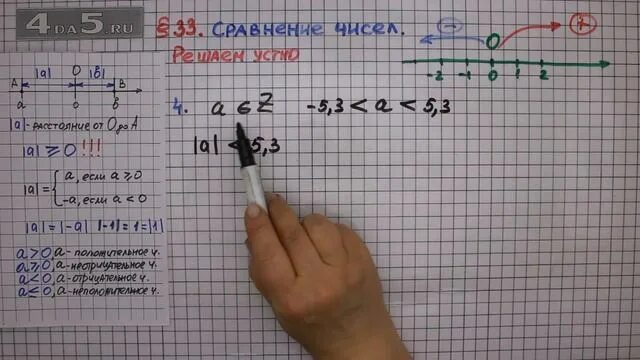 4DA5.RU
§33. Сравнение чисел.
Решаем устно
- +
0
-2 -1 0 1 2
4. a ∈ Z -5,3 < a < 5,3
|a| < 5,3
|a| |b|
A O B
a 0 b
|a| - расстояние от 0 до A
|a| ≥ 0 !!!
|a| = { a, если a ≥ 0
-a, если a < 0
|a| = |-a| |-1| = 1 = |1|
a > 0, a - положительное ч.
a ≥ 0, a - неотрицательное ч.
a < 0, a - отрицательное ч.
a ≤ 0, a - неположительное ч.